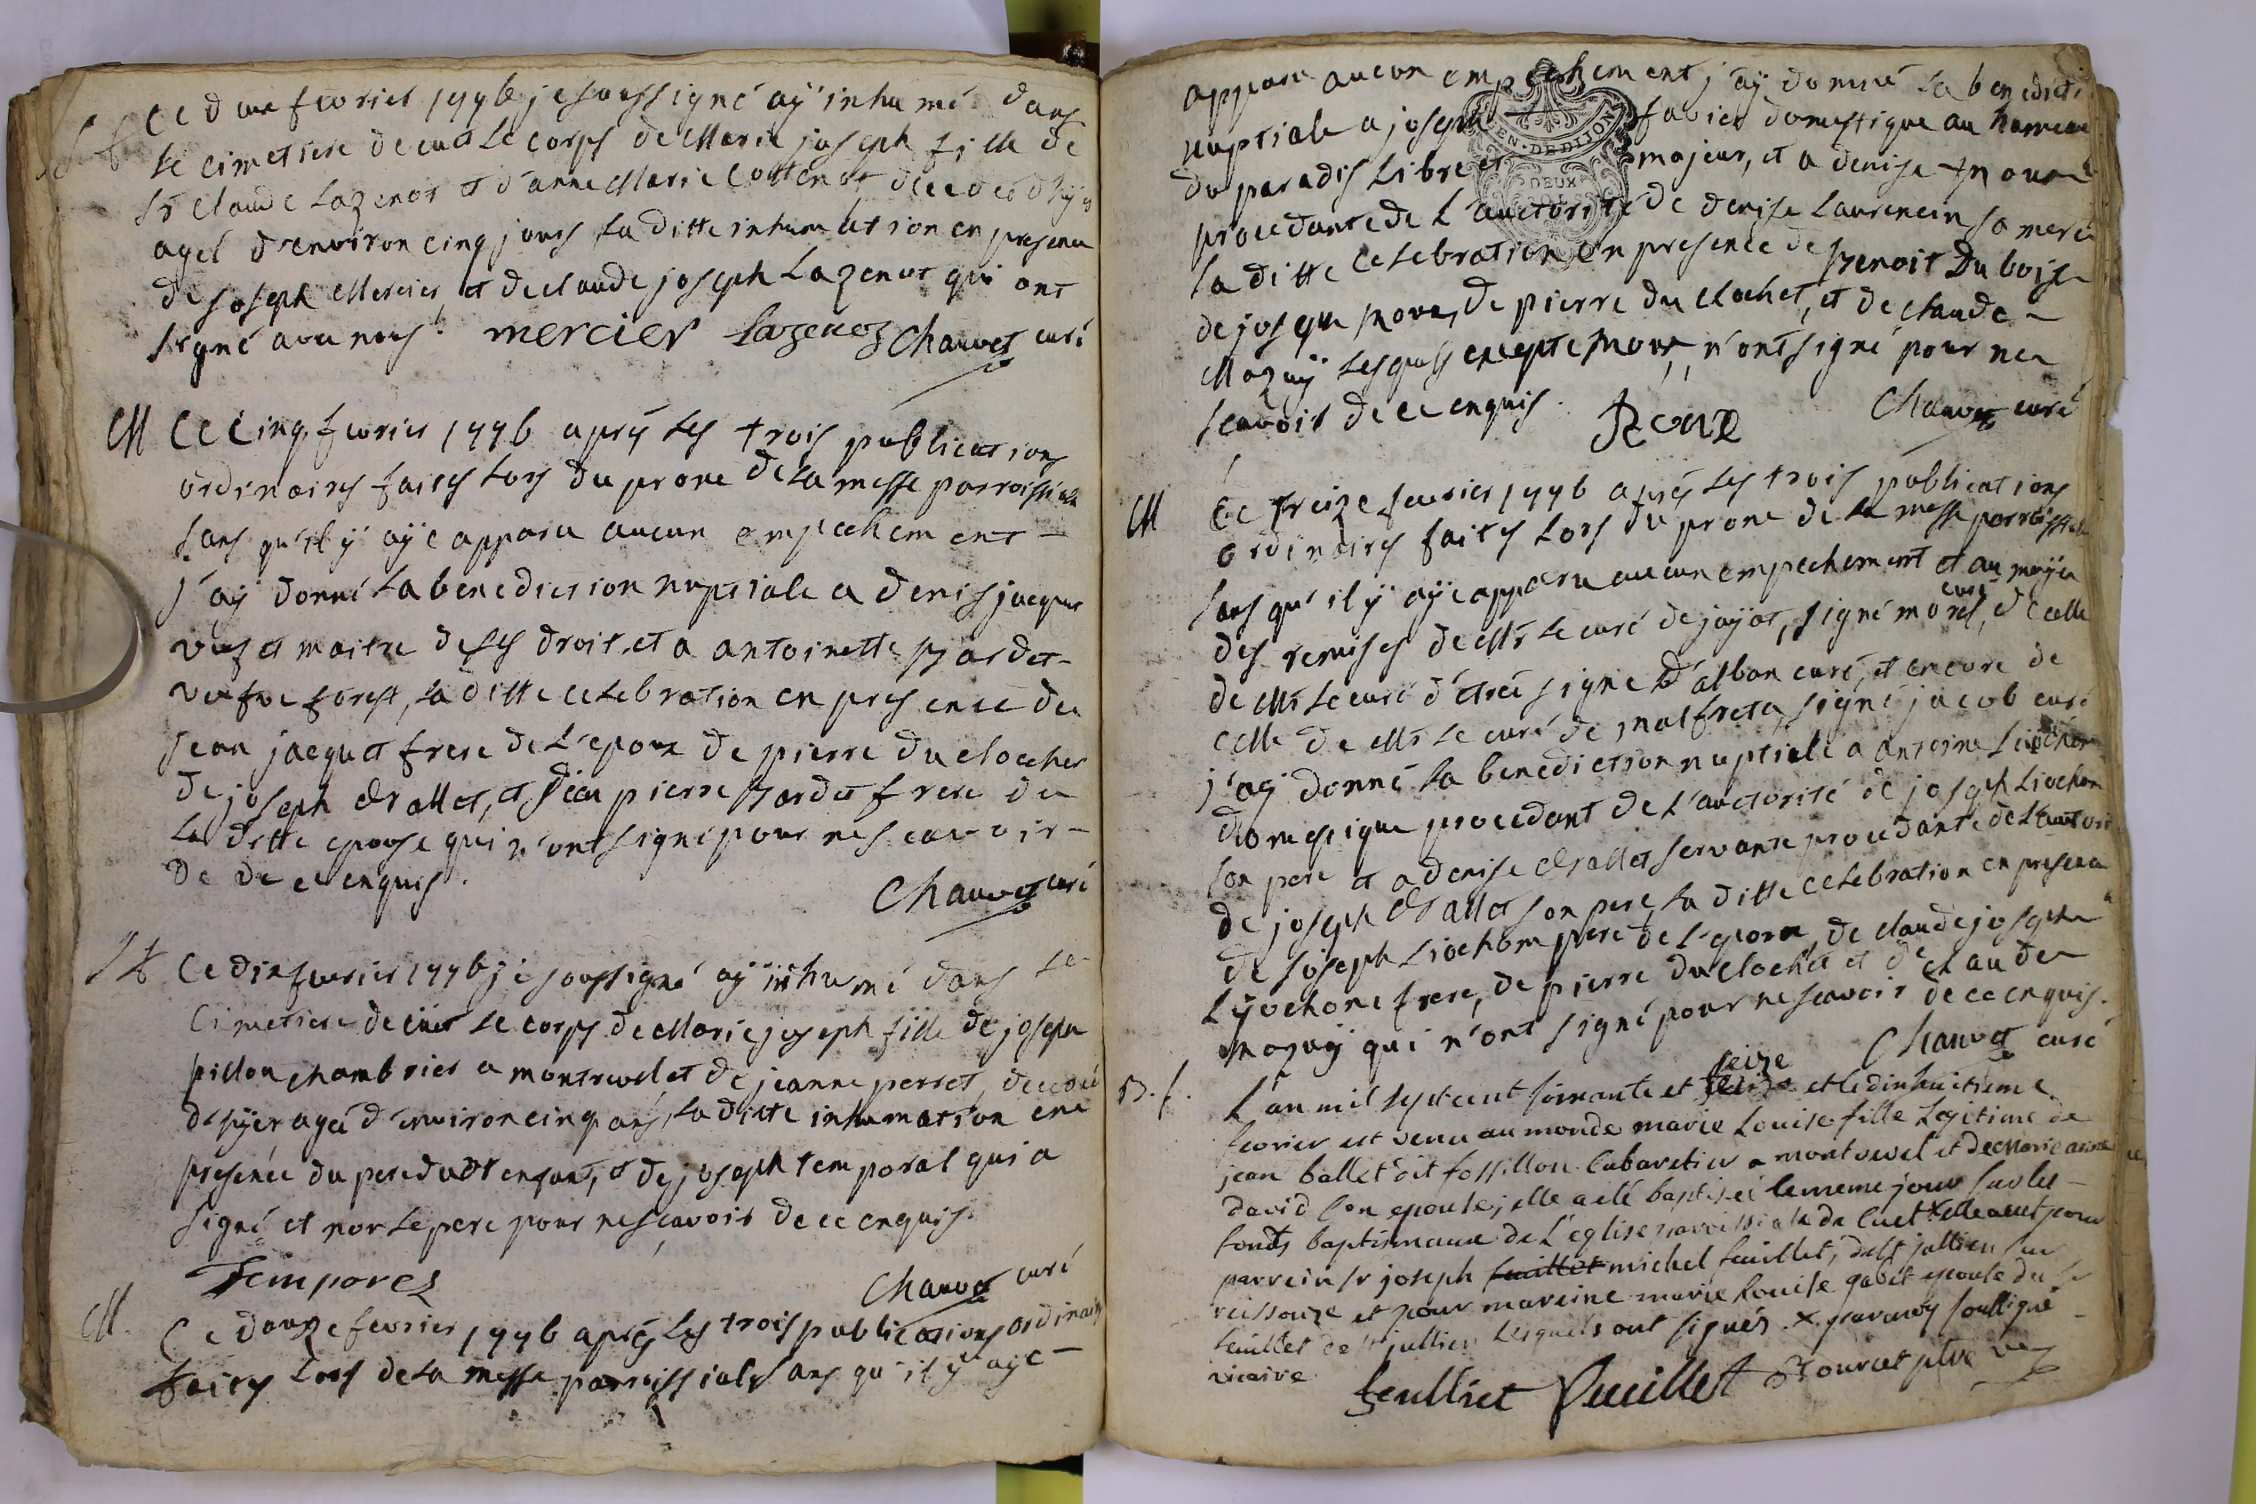 S. f. Ce deux fevrier 1776 je soussigné aÿ inhumé dans
le cimetiere de cuet le corps de Marie joseph fille de
Sr Claude Lazenot et d'anne Marie Cottenot decedée d'hÿer
agée d'environ cinq jours la ditte inhumation en presence
de joseph Mercier, et de claude joseph Lazenot qui ont
signé avec nous. mercier Lazenoz Chauvet curé
M Ce Cinq fevrier 1776 aprés les trois publications
ordinaires faites lors du prone de la messe parroissiale
sans qu'il ÿ aÿe apparu aucun empechement -
j'aÿ donné la benediction nuptiale a denis jaquet
veuf et maitre de ses droit, et a antoinette pardet
veufve forest, la ditte celebration en presence de
jean jaquet frere de l'epoux de pierre du clocher
de joseph drallet, et de jean pierre pardet frere de
la ditte epouse qui n'ont signé pour ne scavoir -
de de ce enquis.
Chauvet curé
Ce dix fevrier 1776 je soussigné aÿ inhumé dans le
Cimetiere de cuet le corps de Marie joseph fille de joseph
pillon chambrier a montrevel et de jeanne perret, decedée
d'hÿer agée d'environ cinq ans, la ditte inhumation en
presence du pere du dt enfant, et de joseph temporal qui a
signé et non le pere pour ne scavoir de ce enquis.
Temporel
Chauvet curé
M. Ce douze fevrier 1776 aprés les trois publications ordinaires
faites lors de la messe parroissiale sans qu'il ÿ aÿe -
apparu aucun empechement j'aÿ donné la benedicti
nuptiale a joseph favier domestique au hameau
EN. DE DIJON
DEUX
du paradis libre et majeur, et a denise
procedante de l'auctorité de denise Laurencin sa mere
la ditte celebration en presence de Benoit Du bois
de joseph, de pierre du clochet, et de claude -
Mazuÿ lesquels excepté n'ont signé pour ne
scavoir de ce enquis.
Chauvet curé
M Ce treize fevrier 1776 aprés les trois publications
ordinaires faites lors du prone de la messe parroissiale
sans qu'il ÿ aÿe apparu aucun empechement et au moÿen
des remises de Mr le curé de jaÿat, signé morel curé, de celle
de Mr le curé d'étréé signé d'alban curé, et encore de
celle de Mr le curé de malfreta, signé jacob curé
j'aÿ donné la benediction nuptiale a antoine Liochon
domestique procedant de l'auctorité de joseph Liochon
son pere et a denise drallet servante procedante de l'autori
de joseph drallet son pere, la ditte celebration en presence
de joseph Liochon pere de l'epoux, de claude joseph
Lÿochon frere, de pierre du clochet et de claude
mazuÿ qui n'ont signé pour ne scavoir de ce enquis.
Chauvet curé
B. f. L'an mil sept cent soixante et seize et le dix huitieme
fevrier est venu au monde marie Louise fille Legitime de
jean ballet dit fossillon Cabaretier a montrevel et de Marie anne
david son epouse; elle a eté baptisée le meme jour sur les -
fonds baptismaux de L'eglise parroissiale de cuet x elle a eut pour
parrein sr joseph feuillet michel feuillet, de st jullien sur
reissouze et pour marreine marie Louise gabet epouse du sr
feuillet de st jullien Lesquels ont signés. x par moy soussigné -
vicaire.
feuilliet Feuillet Tourcet ptre vre